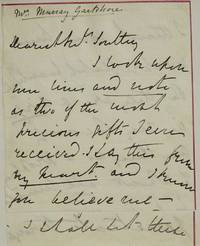 Mrs Murray Gartshore
Dearest Mr Southey
I look upon
and note
as two of the most
precious gifts I ever
received. I say this from
my heart. and I know
you believe me –
I shall let these